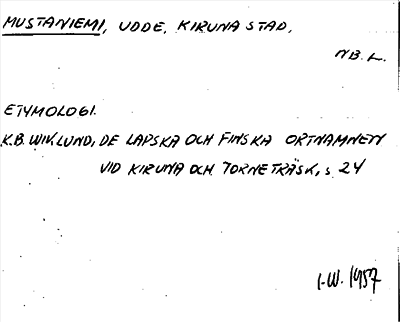 MUSTANIEMI, UDDE, KIRUNA STAD,
NB. L.
ETYMOLOGI.
K.B. WIKLUND, DE LAPSKA OCH FINSKA ORTNAMNEN
VID KIRUNA OCH TORNETRÄSK, s 24
I.W. 1957